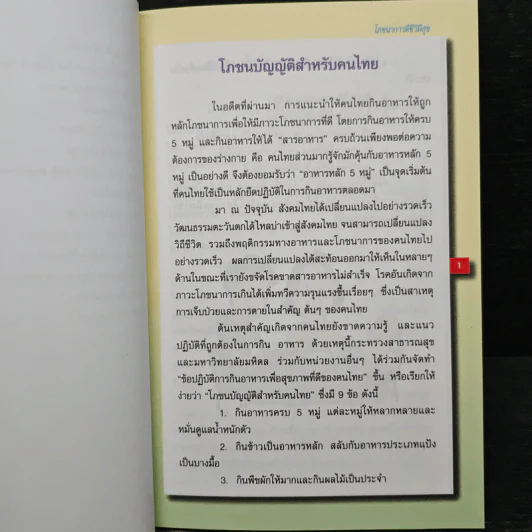 โภชนาการดีชีวีมีสุข
โภชนบัญญัติสำหรับคนไทย
ในอดีตที่ผ่านมา การแนะนำให้คนไทยกินอาหารให้ถูก
หลักโภชนาการเพื่อให้มีภาวะโภชนาการที่ดี โดยการกินอาหารให้ครบ
5 หมู่ และกินอาหารให้ได้ "สารอาหาร" ครบถ้วนเพียงพอต่อความ
ต้องการของร่างกาย คือ คนไทยส่วนมากรู้จักมักคุ้นกับอาหารหลัก 5
หมู่ เป็นอย่างดี จึงต้องยอมรับว่า "อาหารหลัก 5 หมู่" เป็นจุดเริ่มต้น
ที่คนไทยใช้เป็นหลักยึดปฏิบัติในการกินอาหารตลอดมา
มา ณ ปัจจุบัน สังคมไทยได้เปลี่ยนแปลงไปอย่างรวดเร็ว
วัฒนธรรมตะวันตกได้ไหลบ่าเข้าสู่สังคมไทย จนสามารถเปลี่ยนแปลง
วิถีชีวิต รวมถึงพฤติกรรมทางอาหารและโภชนาการของคนไทยไป
อย่างรวดเร็ว ผลการเปลี่ยนแปลงได้สะท้อนออกมาให้เห็นในหลายๆ
ด้านในขณะที่เรายังขจัดโรคขาดสารอาหารไม่สำเร็จ โรคอันเกิดจาก
ภาวะโภชนาการเกินได้เพิ่มทวีความรุนแรงขึ้นเรื่อยๆ ซึ่งเป็นสาเหตุ
การเจ็บป่วยและการตายในสำคัญ ต้นๆ ของคนไทย
ต้นเหตุสำคัญเกิดจากคนไทยยังขาดความรู้ และแนว
ปฏิบัติที่ถูกต้องในการกิน อาหาร ด้วยเหตุนี้กระทรวงสาธารณสุข
และมหาวิทยาลัยมหิดล ร่วมกับหน่วยงานอื่นๆ ได้ร่วมกันจัดทำ
"ข้อปฏิบัติการกินอาหารเพื่อสุขภาพที่ดีของคนไทย" ขึ้น หรือเรียกให้
ง่ายว่า "โภชนบัญญัติสำหรับคนไทย" ซึ่งมี 9 ข้อ ดังนี้
1. กินอาหารครบ 5 หมู่ แต่ละหมู่ให้หลากหลายและ
หมั่นดูแลน้ำหนักตัว
2. กินข้าวเป็นอาหารหลัก สลับกับอาหารประเภทแป้ง
เป็นบางมื้อ
3. กินพืชผักให้มากและกินผลไม้เป็นประจำ
1